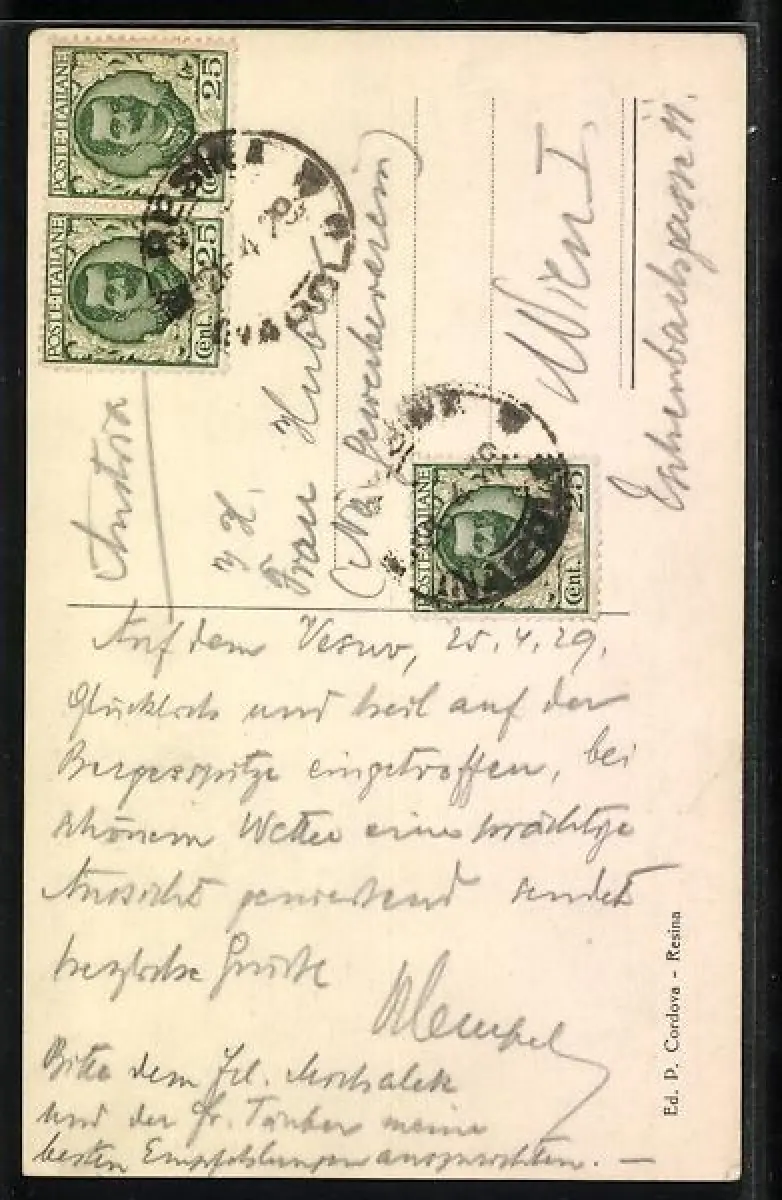 POSTE·ITALIANE
25
Cent.
POSTE·ITALIANE
25
Cent.
POSTE·ITALIANE
25
Cent.
RESINA
Austria
Frau Huber
(Nö. Gewerbeverein)
Wien I
Eschenbachgasse 11.
Auf dem Vesuv, 25.4.29.
Glücklich und heil auf der
Bergesspitze eingetroffen, bei
schönem Wetter eine prächtige
Aussicht geniessend sendet
herzliche Grüsse
Bitte dem Frl.
und der Fr. meine
besten Empfehlungen auszurichten. —
Ed. P. Cordova - Resina